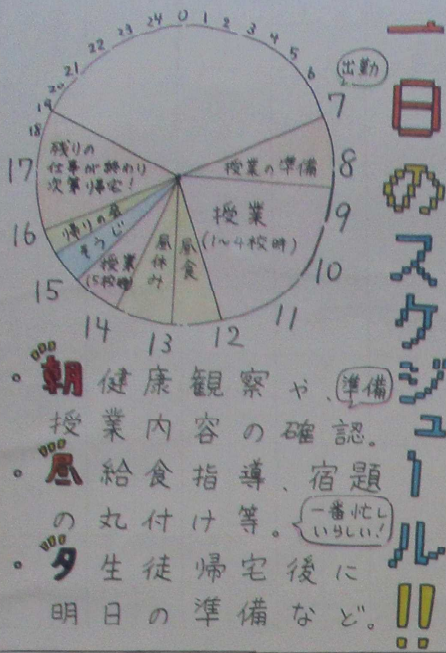 一日のスケジュール!!
24 0 1 2 3 4 5 6
7
出勤
8
9
10
11
12
13
14
15
16
17
18
19
20
21
22
23
授業の準備
授業
(1〜4校時)
昼食
昼休み
授業
(5校時)
そうじ
帰りの会
残りの
仕事が終わり
次第帰宅!
・朝 健康観察や、準備
授業内容の確認。
・昼 給食指導、宿題
の丸付け等。
一番忙し
いらしい!
・夕 生徒帰宅後に
明日の準備など。